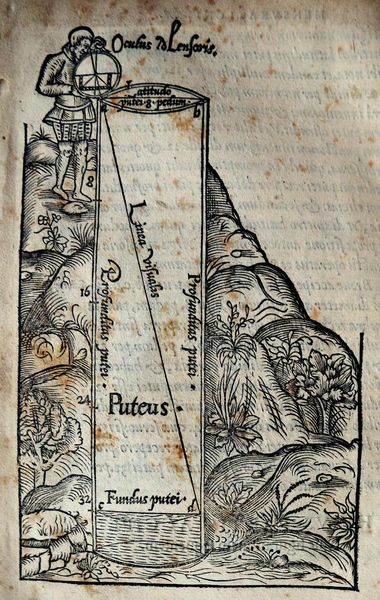 Oculus Mensoris.
Latitudo
putei 8 pedum.
b
8
Linea visualis
Profunditas putei
Profunditas putei
16
24
Puteus.
32
Fundus putei.
c
d